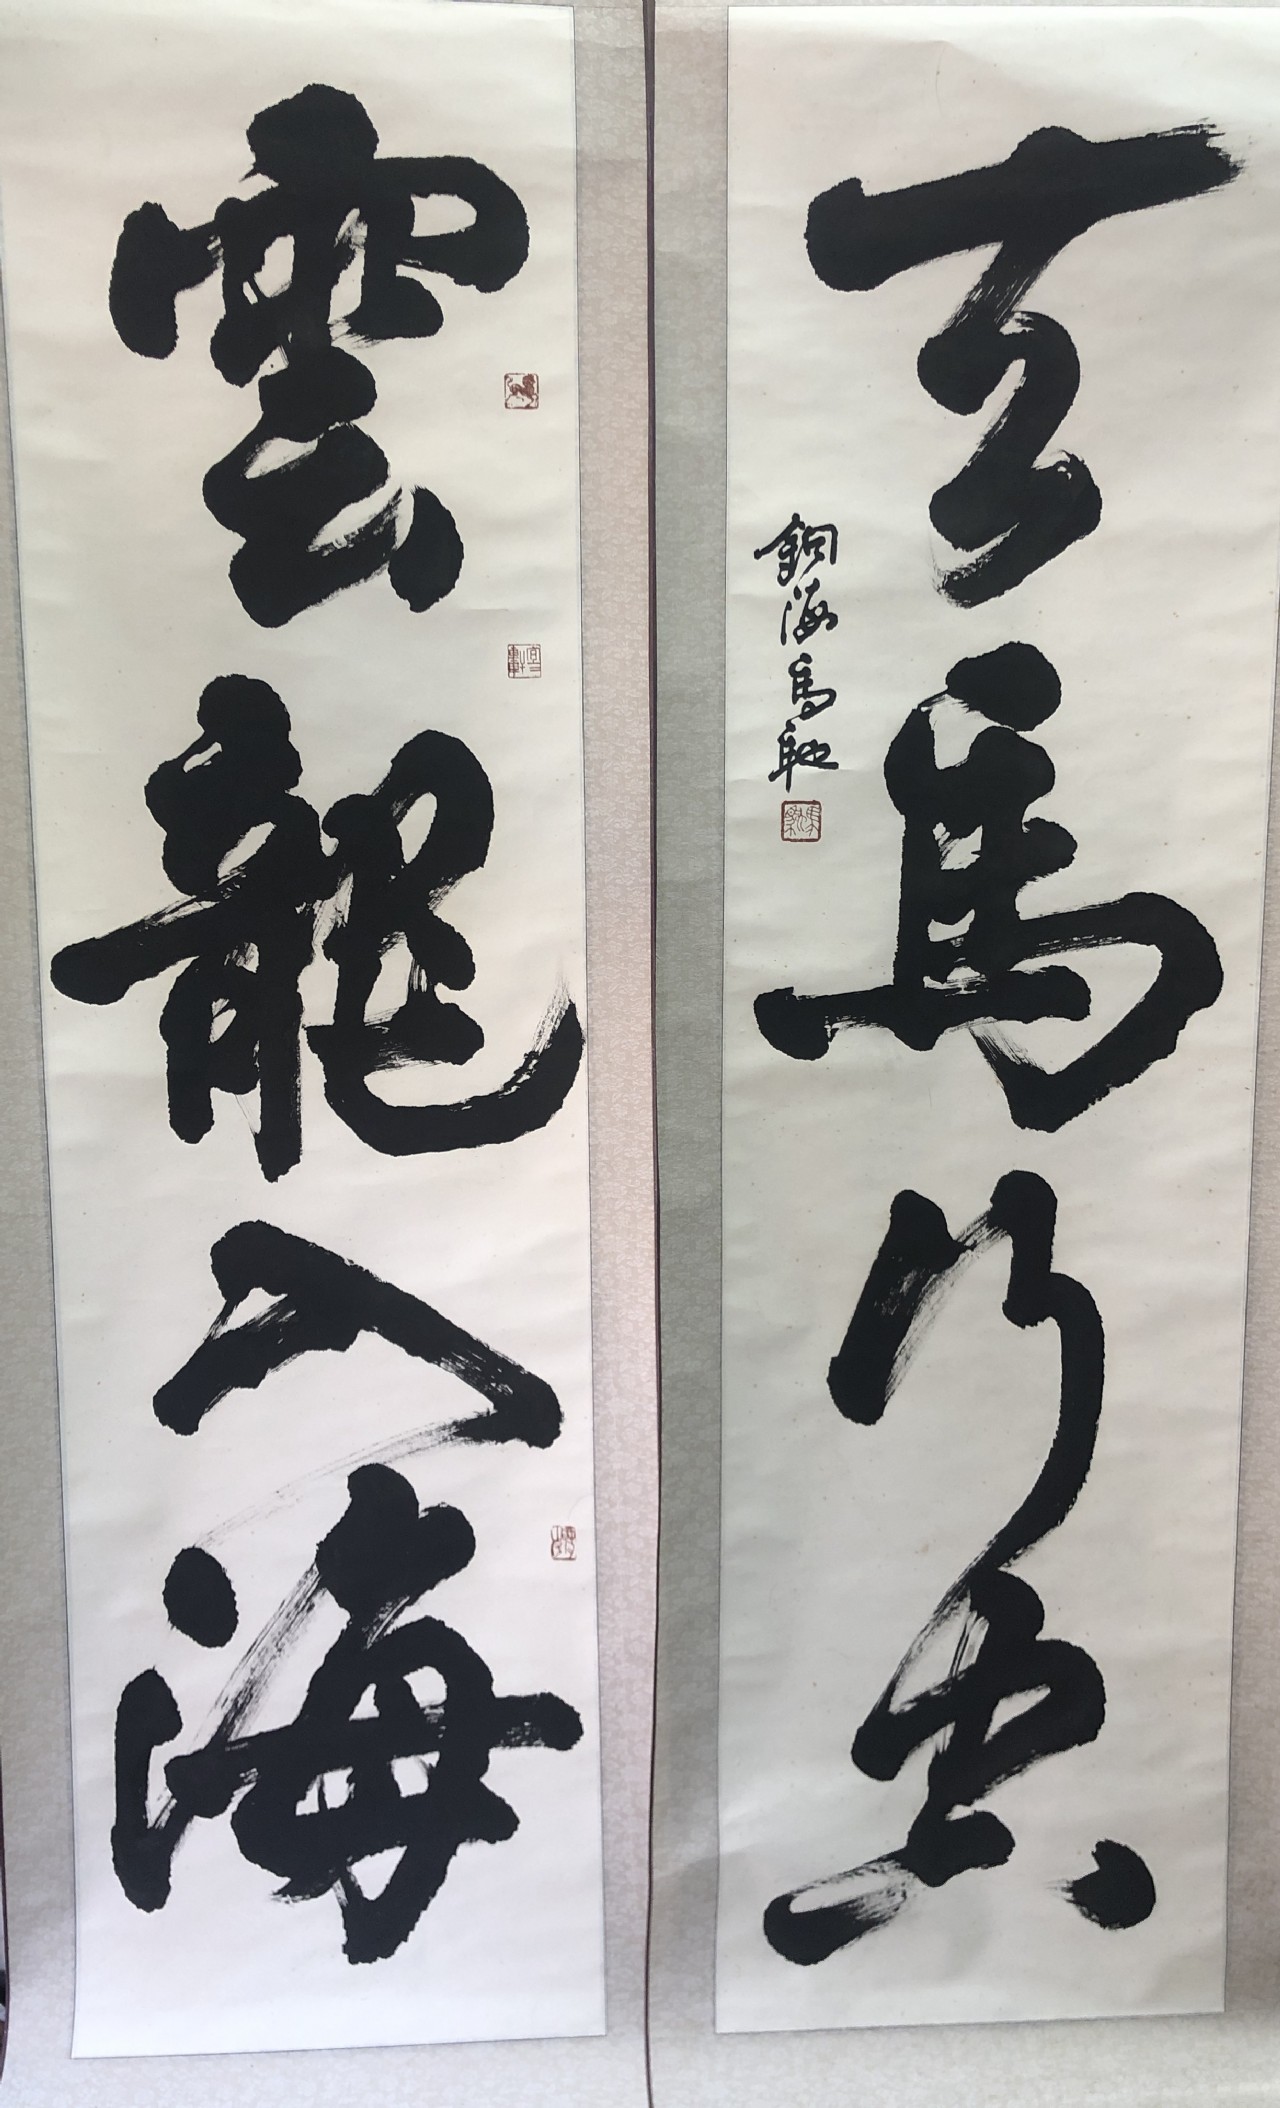 雲龍入海
天馬行空
銅海馬馳